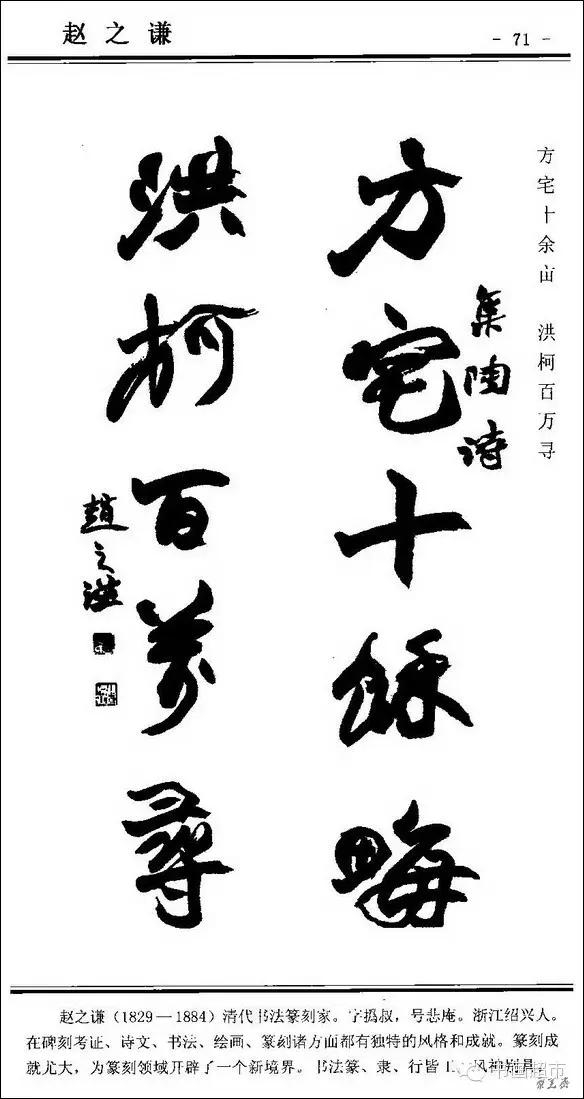 赵之谦
- 71 -
方宅十余亩 洪柯百万寻
方宅十餘畮
集陶詩
洪柯百萬尋
趙之謙
赵之谦(1829—1884)清代书法篆刻家。字撝叔,号悲庵。浙江绍兴人。
在碑刻考证、诗文、书法、绘画、篆刻诸方面都有独特的风格和成就。篆刻成
就尤大,为篆刻领域开辟了一个新境界。书法篆、隶、行皆工,风神别具。